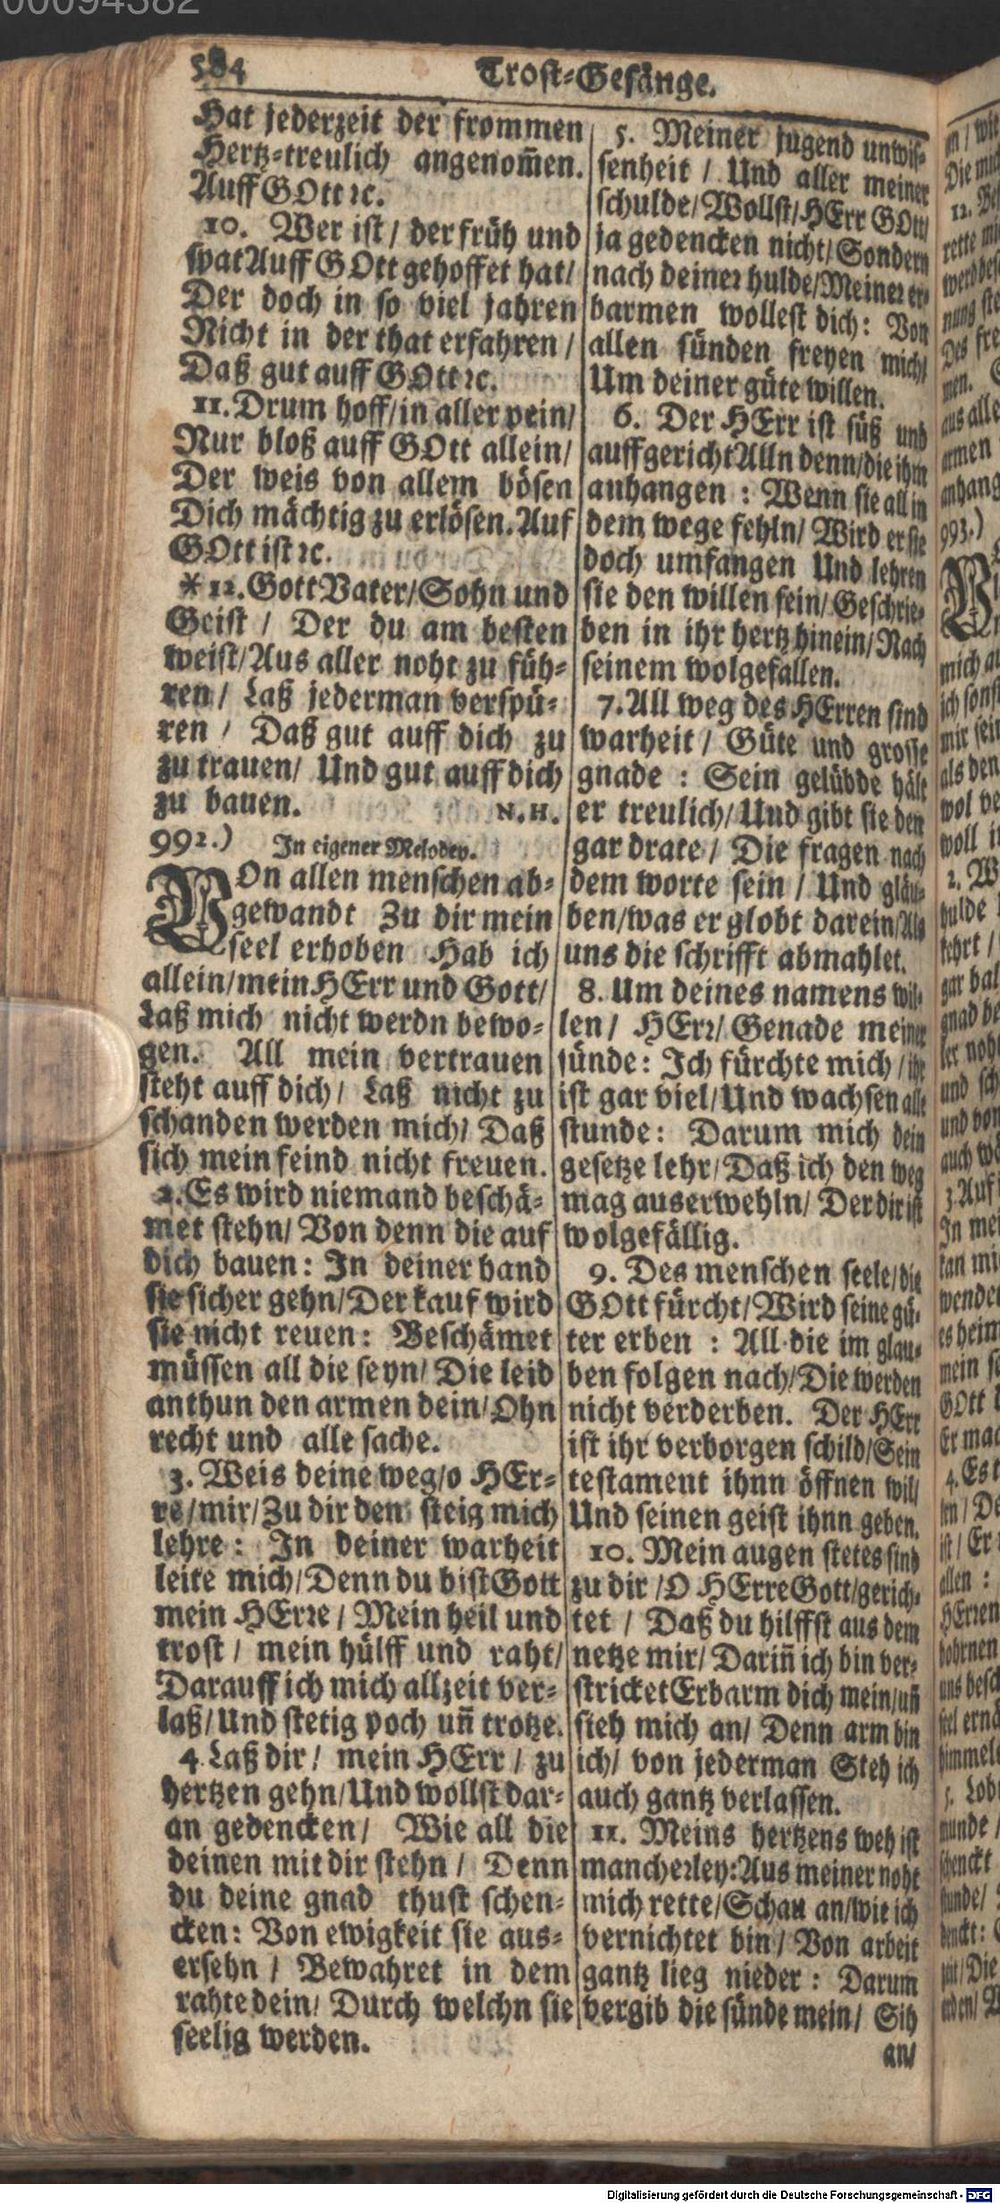 00094382
584
Trost-Gesänge.
Hat jederzeit der frommen
Hertz-treulich angenom̃en.
Auff GOtt ꝛc.
10. Wer ist / der früh und
spat Auff GOtt gehoffet hat/
Der doch in so viel jahren
Nicht in der that erfahren /
Daß gut auff GOtt ꝛc.
11. Drum hoff/in aller pein/
Nur bloß auff GOtt allein/
Der weis von allem bösen
Dich mächtig zu erlösen. Auf
GOtt ist ꝛc.
* 12. Gott Vater/Sohn und
Geist / Der du am besten
weist/Aus aller noht zu füh-
ren / Laß jederman verspü-
ren / Daß gut auff dich zu
zu trauen/ Und gut auff dich
zu bauen. N. H.
992.) In eigener Melodey.
VOn allen menschen ab-
gewandt Zu dir mein
seel erhoben Hab ich
allein/mein HErr und Gott/
Laß mich nicht werdn bewo-
gen. All mein vertrauen
steht auff dich/ Laß nicht zu
schanden werden mich/ Daß
sich mein feind nicht freuen.
2. Es wird niemand beschä-
met stehn/ Von denn die auf
dich bauen: In deiner hand
sie sicher gehn/Der kauf wird
sie nicht reuen: Beschämet
müssen all die seyn/ Die leid
anthun den armen dein/Ohn
recht und alle sache.
3. Weis deine weg/o HEr-
re/mir/Zu dir den steig mich
lehre: In deiner warheit
leite mich/Denn du bist Gott
mein HErre / Mein heil und
trost / mein hülff und raht/
Darauff ich mich allzeit ver-
laß/Und stetig poch uñ trotze.
4 Laß dir / mein HErr / zu
hertzen gehn/Und wollst dar-
an gedencken/ Wie all die
deinen mit dir stehn / Denn
du deine gnad thust schen-
cken: Von ewigkeit sie aus-
ersehn / Bewahret in dem
rahte dein/ Durch welchn sie
seelig werden.
5. Meiner jugend unwis-
senheit / Und aller meiner
schulde/Wollst/HErr GOtt/
ja gedencken nicht/Sondern
nach deiner hulde/Meiner er-
barmen wollest dich: Von
allen sünden freyen mich/
Um deiner güte willen.
6. Der HErr ist süß und
auffgericht Alln denn/die ihm
anhangen : Wenn sie all in
dem wege fehln/ Wird er sie
doch umfangen Und lehren
sie den willen sein/ Geschrie-
ben in ihr hertz hinein/Nach
seinem wolgefallen.
7. All weg des HErren sind
warheit / Güte und grosse
gnade : Sein gelübde hält
er treulich/Und gibt sie den
gar drate / Die fragen nach
dem worte sein / Und gläu-
ben/was er globt darein/Als
uns die schrifft abmahlet.
8. Um deines namens wil-
len / HErr/ Genade meiner
sünde: Ich fürchte mich / ihr
ist gar viel/Und wachsen alle
stunde: Darum mich dein
gesetze lehr/Daß ich den weg
mag auserwehln/ Der dir ist
wolgefällig.
9. Des menschen seele/die
GOtt fürcht/Wird seine gü-
ter erben : All die im glau-
ben folgen nach/Die werden
nicht verderben. Der HErr
ist ihr verborgen schild/Sein
testament ihnn öffnen wil/
Und seinen geist ihnn geben.
10. Mein augen stetes sind
zu dir /O HErre Gott/gerich-
tet / Daß du hilffst aus dem
netze mir/ Dariñ ich bin ver-
stricket Erbarm dich mein/uñ
sieh mich an/ Denn arm bin
ich/ von jederman Steh ich
auch gantz verlassen.
11. Meins hertzens weh ist
mancherley: Aus meiner noht
mich rette/Schau an/wie ich
vernichtet bin / Von arbeit
gantz lieg nieder : Darum
vergib die sünde mein/ Sih
an/
Digitalisierung gefördert durch die Deutsche Forschungsgemeinschaft - DFG